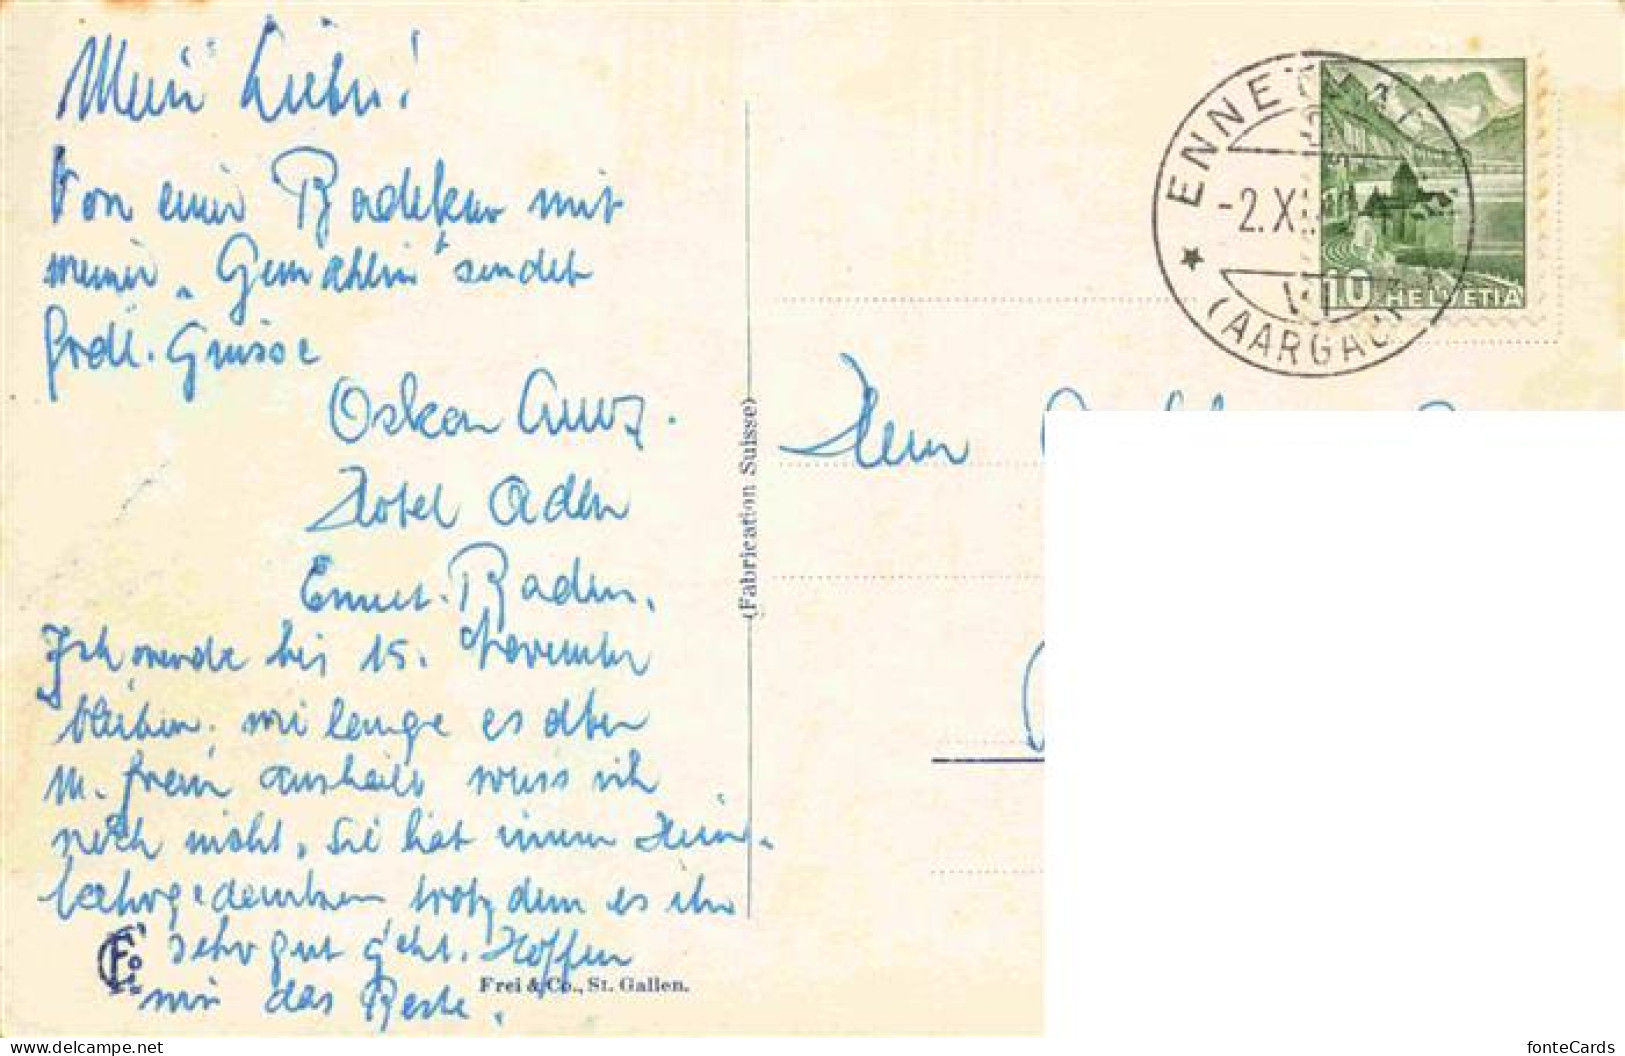 Mein Lieber!
Von einer Badekur mit
meiner „Gemahlin" sendet
frdl. Grüsse
Oskar
Hotel Adler
Ennet-Baden.
Ich werde bis 15. November
bleiben, wie lange es aber
m. Frau aushält weiss ich
noch nicht, Sie hat immer Heim-
kehrgedanken trotzdem es ihr
sehr gut geht. Hoffen
wir das Beste.
Frei & Co., St. Gallen.
(Fabrication Suisse)
ENNETBA
-2.XI.
(AARGAU)
10 HELVETIA
Herrn
fonteCards
www.delcampe.net